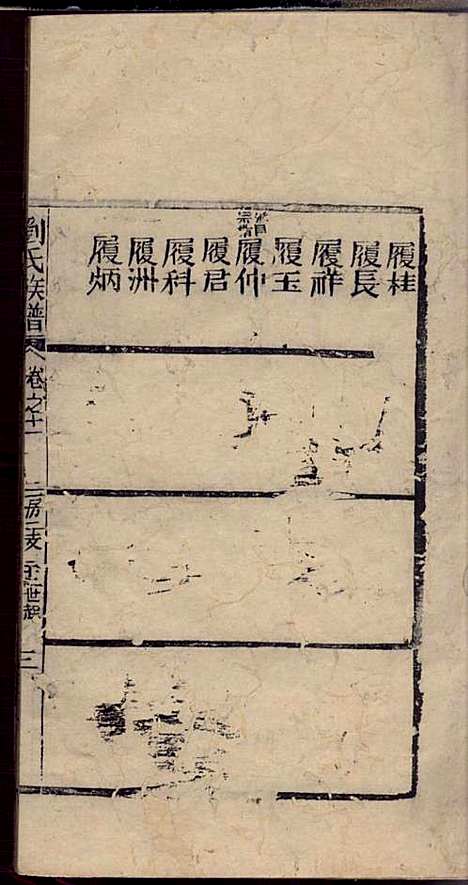 履桂
履長
履祥
履玉
履仲
履君
履科
履洲
履炳
劉氏族譜
卷之十一
二房二支
世起
三